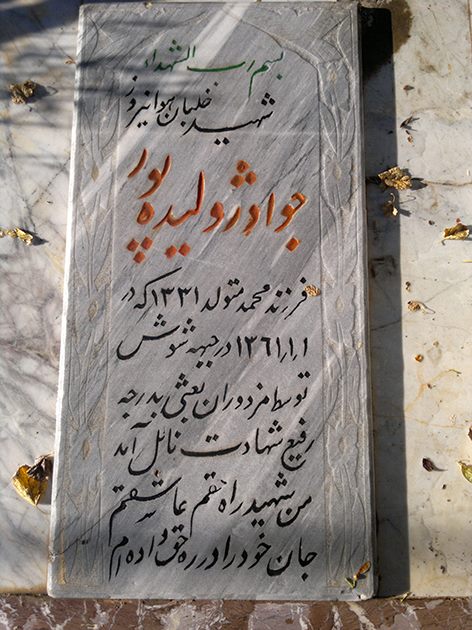 بسم رب الشهداء
شهید خلبان هوانیروز
جواد ژولیده پور
فرزند محمد متولد ۱۳۳۱ که در
۱۳۶۱٫۱٫۱ در جبهه شوش
توسط مزدوران بعثی بدرجه
رفیع شهادت نائل آمد
من شهید راه حقم عاشقم
جان خود را در ره حق داده ام